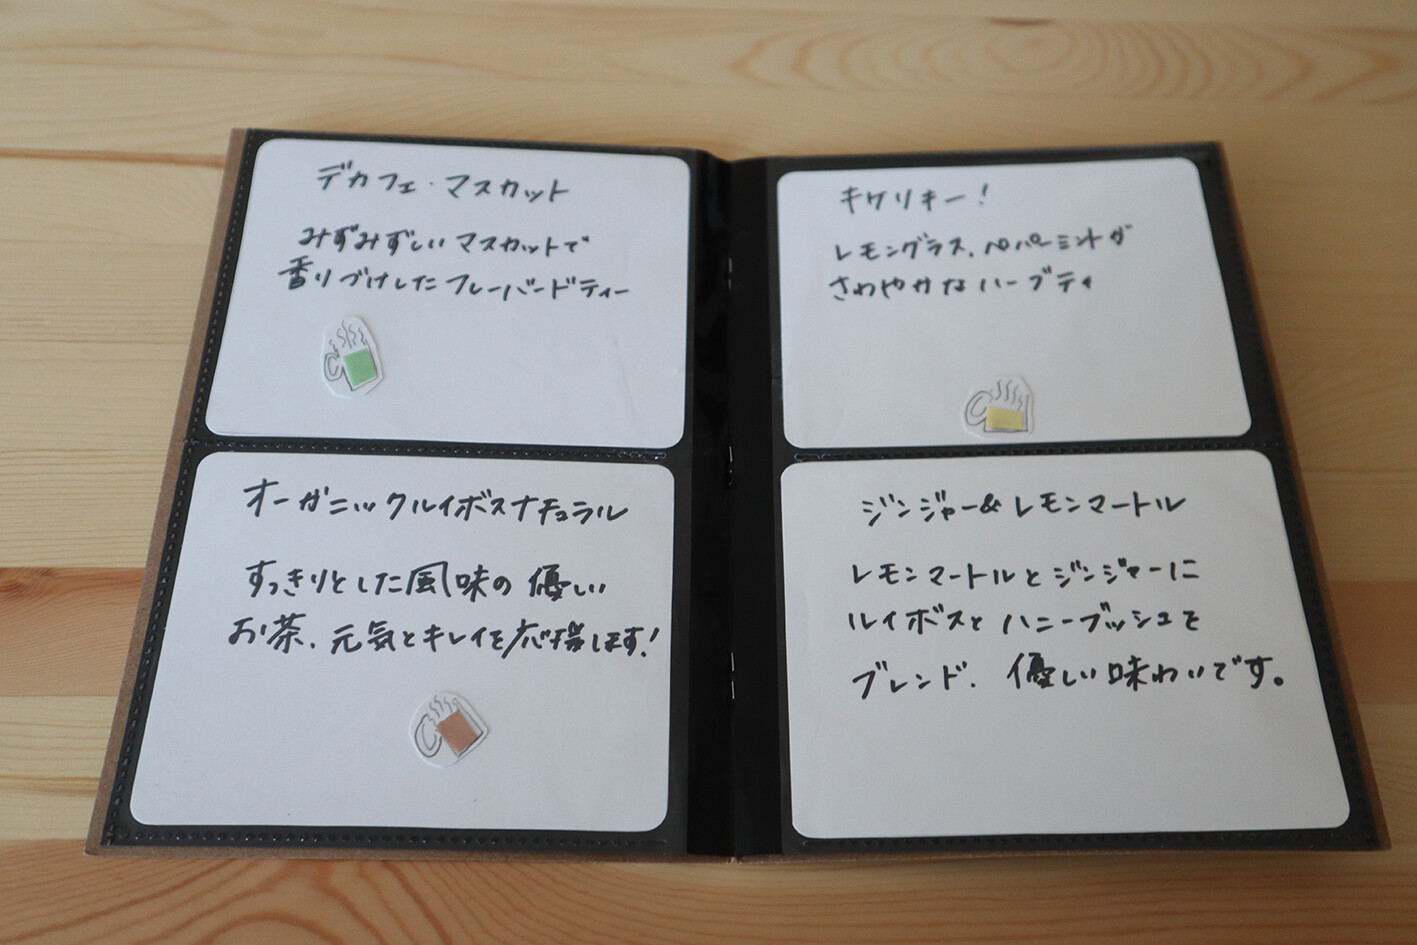 デカフェ・マスカット
みずみずしいマスカットで
香りづけしたフレーバードティー
オーガニックルイボスナチュラル
すっきりとした風味の優しい
お茶、元気とキレイを応援します!
キケリキー!
レモングラス、ペパーミントが
さわやかなハーブティ
ジンジャー&レモンマートル
レモンマートルとジンジャーに
ルイボスとハニーブッシュを
ブレンド、優しい味わいです。